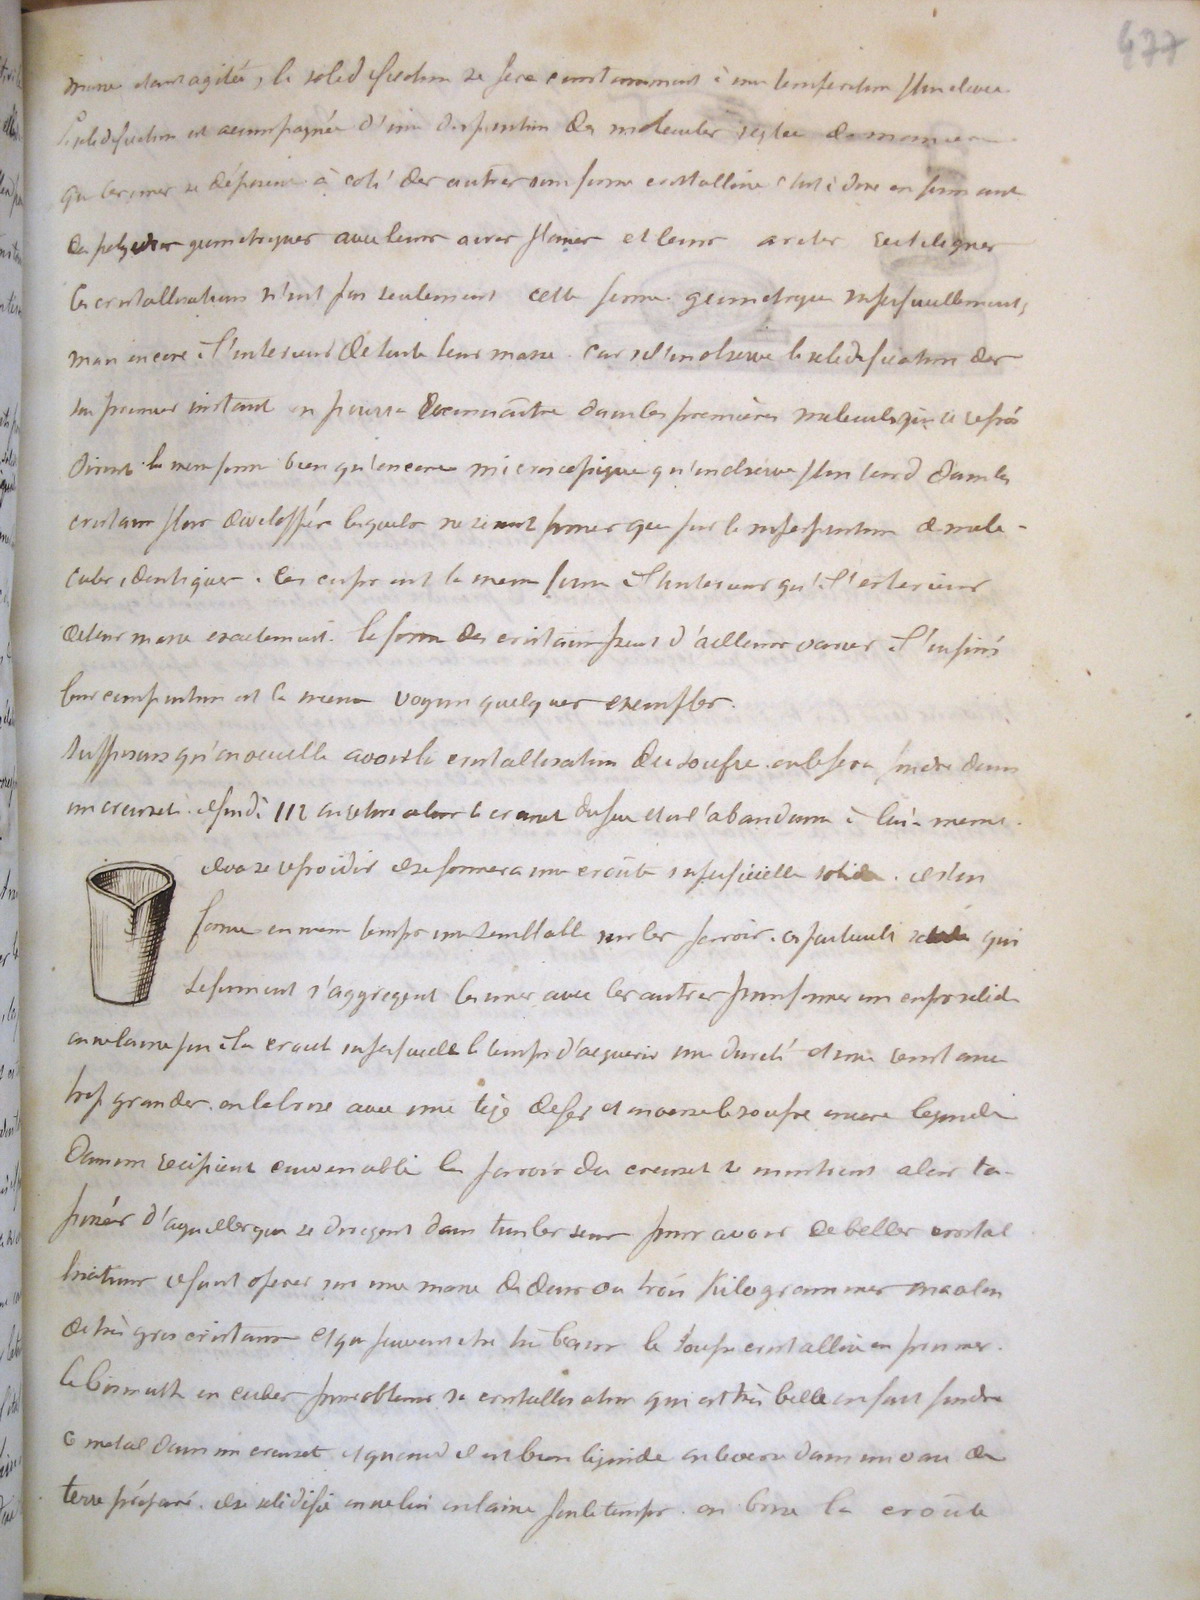 477
étant agitée, la solidification se fera constamment à une température plus élevée
solidification est accompagnée d'une disposition des molecules réglée de maniere
que les unes se déposent à coté des autres sous forme cristalline c'est à dire en formant
des polyedres geometriques avec leurs axes planes et leurs aretes rectilignes
les cristallisations n'ont pas seulement cette forme geometrique superficiellement,
mais encore à l'interieur de toute leur masse. Car si l'on observe la solidification des
son premier instant on pourra reconnaître dans les premières molecules qui se refroi
dissent la meme forme bien qu'encore microscopique qu'on observe plus tard dans les
cristaux plus developpés lesquels ne seront formes que par la superposition de mole-
cules identiques. Ces corps ont la meme forme à l'interieur qu'à l'exterieur
de leur masse exactement. la forme des cristaux peut d'ailleurs varier à l'infini
leur composition est la meme voyons quelques exemples.
Supposons qu'on veuille avoir la cristallisation du soufre. on le fera fondre dans
un creuset. il fond à 112 on retire alors le creuset du feu et on l'abandonne à lui-meme.
il va se refroidir il se formera une croûte superficielle solide. il s'en
forme en meme temps une semblable sur les parois. ces particules qui
se forment s'aggregent les unes avec les autres pour former un corps solide
on ne laisse pas à la croute superficielle le temps d'acquerir une dureté et une resistance
trop grandes. on la brise avec une tige de fer et on verse le soufre encore liquide
Dans un recipient convenable les parois du creuset se montrent alors ta-
pissées d'aiguilles qui se dirigent dans tous les sens pour avoir de belles cristal
lisations il faut operer sur une masse de deux ou trois Kilogrammes on a alors
de très gros cristaux et qui peuvent etre très beaux le soufre cristallise en prismes.
le bismuth en cubes pour obtenir sa cristallisation qui est très belle on fait fondre
ce metal dans un creuset et quand il est bien liquide on le verse dans un vase de
terre préparé. il se solidifie on ne lui en laisse pas le temps. on brise la croûte